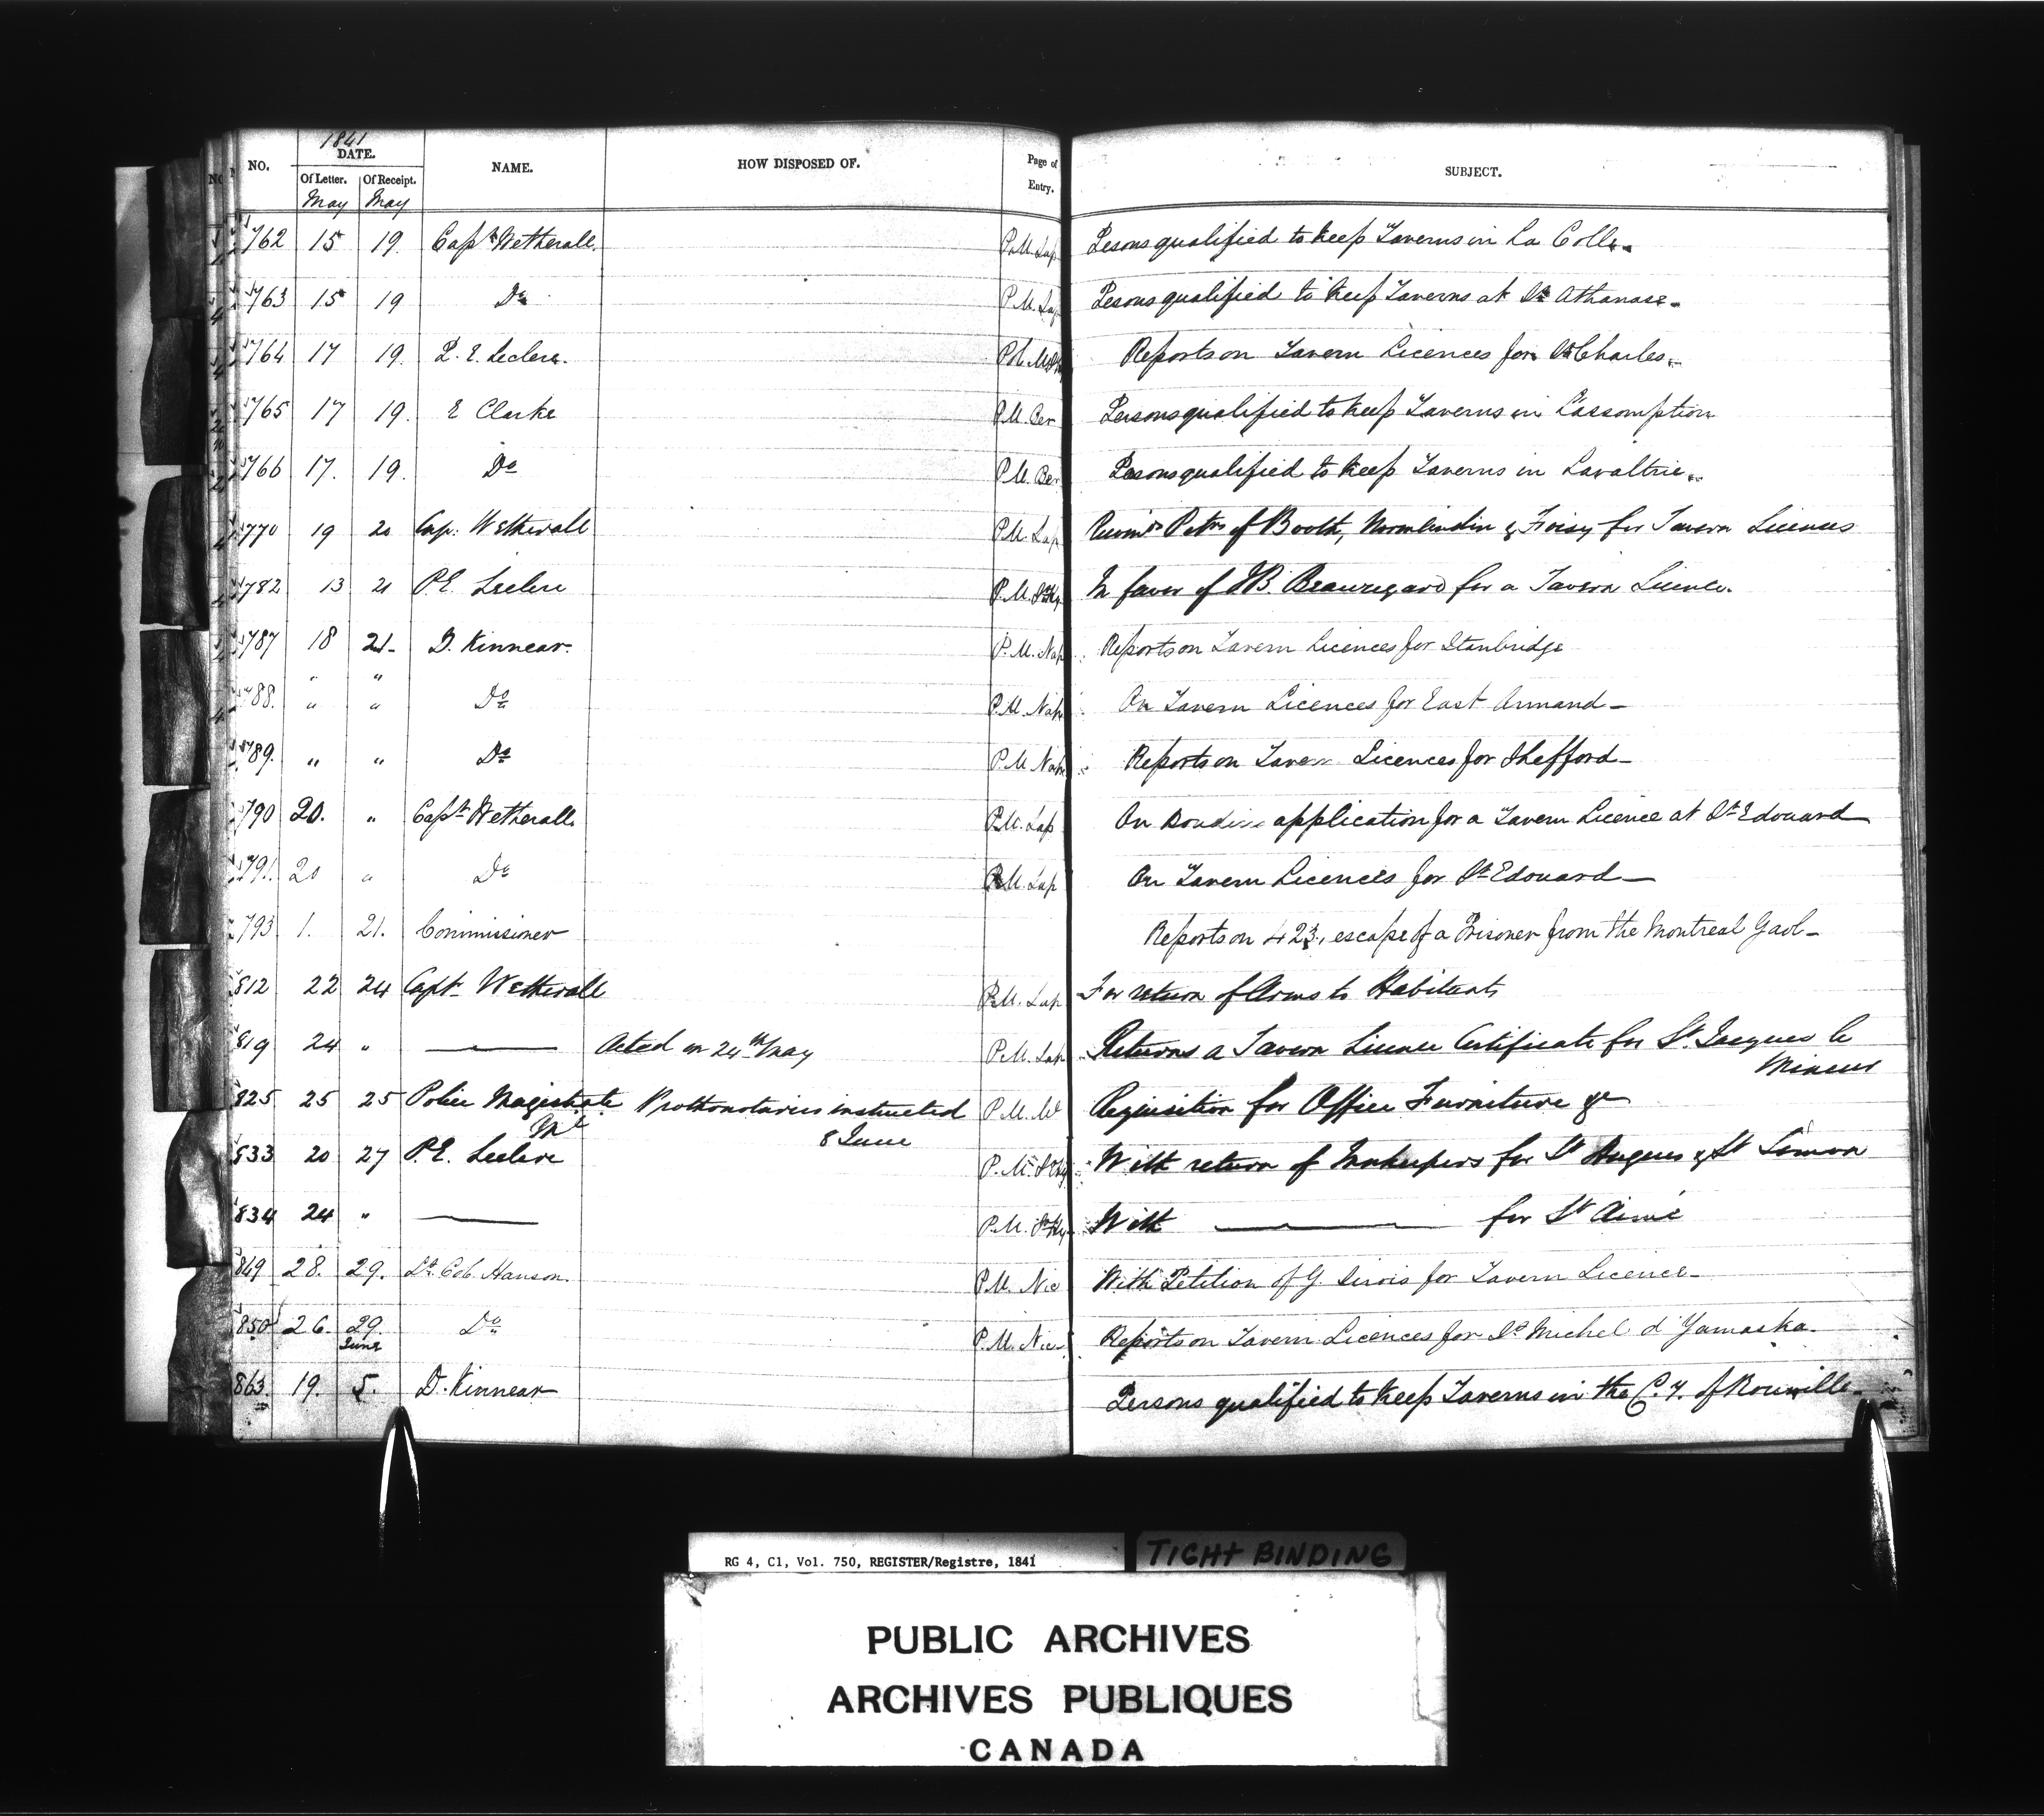 1841
NO. DATE. NAME. HOW DISPOSED OF. Page of Entry. SUBJECT.
Of Letter. Of Receipt.
May May
762 15 19. Capt Wetherall. P.M. Lap Pesons qualified to keep Taverns in La Colle.
763 15 19 Do P.M. Lap Pesons qualified to keep Taverns at St Athanase.
764 17 19. P. E. Leclere. Reports on Tavern Licences for St Charles.
765 17 19. E Clarke P.M. Ber Persons qualified to keep Taverns in L'assomption
766 17. 19. Do P.M. Ber Pesons qualified to keep Taverns in Lavaltrie.
770 19 20 Cap. Wetherall P.M. Lap Petns of Booth, & Foisy for Tavern Licences
782 13 21 P.E. Leclere P.M. St Hy. In favor of JB. Beauregard for a Tavern Licence.
787 18 21- D. Kinnear. P.M. Nap Reports on Tavern Licences for Stanbridge
" "
788. " " Do P.M. Nap On Tavern Licences for East Armand-
789. " " Do P.M. Nap Reports on Tavern Licences for Shefford-
790 20. " Capt Wetherall P.M. Lap On application for a Tavern Licence at St Edouard
791. 20 " Do P.M. Lap On Tavern Licences for St Edouard-
793 1. 21. Commissioner Reports on 423, escape of a Prisoner from the Montreal Gaol-
812 22 24 Capt Wetherall P.M. Lap For return of Arms to Habitants
819 24 " — Acted on 24th May P.M. Lap Returns a Tavern Licence Certificate for St. Jacques le
Mineur
825 25 25 Police Magistrate Prothonotaries instructed P.M. Ml Requisition for Office Furniture &c
Ml 8 June
833 20 27 P.E. Leclere P.M. St Hy With return of Innkeepers for St Hugues & St Simon
834 24 " — P.M. St Hy With — for St Aimé
849 28. 29. Lt Col. Hanson. P.M. Nic With Petition of G. Sirois for Tavern Licence-
850 26. 29. Do P.M. Nic Reports on Tavern Licences for St Michel d'Yamaska.
June
863. 19. 5. D. Kinnear Persons qualified to keep Taverns in the Cy. of Rouville-
RG 4, C1, Vol. 750, REGISTER/Registre, 1841
TIGHT BINDING
PUBLIC ARCHIVES
ARCHIVES PUBLIQUES
CANADA